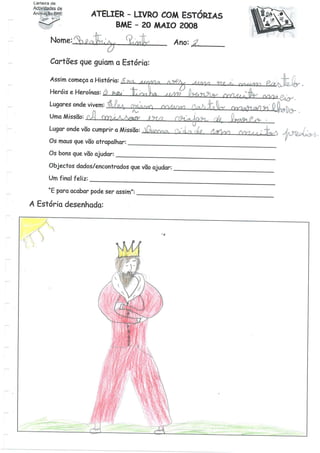 Carteira de
Actividades de
Animação BME
ATELIER - LIVRO COM ESTÓRIAS
BME - 20 MAIO 2008
Nome: Beatriz Pinto Ano: 2
Cartões que guiam a Estória:
Assim começa a História: Era uma vez um rei num castelo.
Heróis e Heroínas: O rei tinha um burro muito macio.
Lugares onde vivem: Eles num castelo
Uma Missão: A missão era viajar de barco.
Lugar onde vão cumprir a Missão: Numa cidade com muitos prédios
Os maus que vão atrapalhar:
Os bons que vão ajudar:
Objectos dados/encontrados que vão ajudar:
Um final feliz:
"E para acabar pode ser assim":
A Estória desenhada: